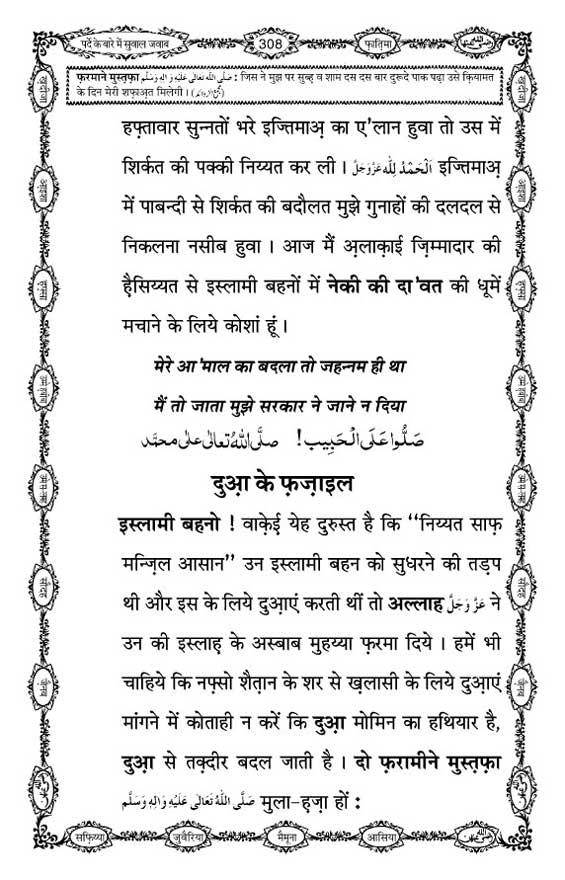 पर्दे के बारे में सुवाल जवाब
308
फ़ातिमा
फ़रमाने मुस्तफ़ा صَلَّى اللّٰهُ تَعَالٰى عَلَيْهِ وَاٰلِهٖ وَسَلَّم : जिस ने मुझ पर सुब्ह व शाम दस दस बार दुरूदे पाक पढ़ा उसे क़ियामत
के दिन मेरी शफ़ाअ़त मिलेगी।
हफ़्तावार सुन्नतों भरे इज्तिमाअ़ का ए'लान हुवा तो उस में
शिर्कत की पक्की निय्यत कर ली। اَلْحَمْدُ لِلّٰه عَزَّوَجَلَّ इज्तिमाअ़
में पाबन्दी से शिर्कत की बदौलत मुझे गुनाहों की दलदल से
निकलना नसीब हुवा। आज मैं अ़लाक़ाई ज़िम्मादार की
है़सिय्यत से इस्लामी बहनों में नेकी की दा'वत की धूमें
मचाने के लिये कोशां हूं।
मेरे आ'माल का बदला तो जहन्नम ही था
मैं तो जाता मुझे सरकार ने जाने न दिया
صَلُّوا عَلَى الْحَبِيب! صلَّى اللّٰهُ تعالىٰ علىٰ محمَّد
दुआ़ के फ़ज़ाइल
इस्लामी बहनो ! वाक़ेई येह दुरुस्त है कि ‘‘निय्यत साफ़
मन्ज़िल आसान’’ उन इस्लामी बहन को सुधरने की तड़प
थी और इस के लिये दुआ़एं करती थीं तो अल्लाह عَزَّ وَجَلَّ ने
उन की इस्लाह़ के अस्बाब मुहय्या फ़रमा दिये। हमें भी
चाहिये कि नफ़्सो शैत़ान के शर से ख़लासी के लिये दुआ़एं
मांगने में कोताही न करें कि दुआ़ मोमिन का हथियार है,
दुआ़ से तक़्दीर बदल जाती है। दो फ़रामीने मुस्त़फ़ा
صَلَّى اللّٰهُ تَعَالٰى عَلَيْهِ وَاٰلِهٖ وَسَلَّم मुला-ह़ज़ा हों :
सफ़िय्या
जुवैरिया
मैमूना
आसिया